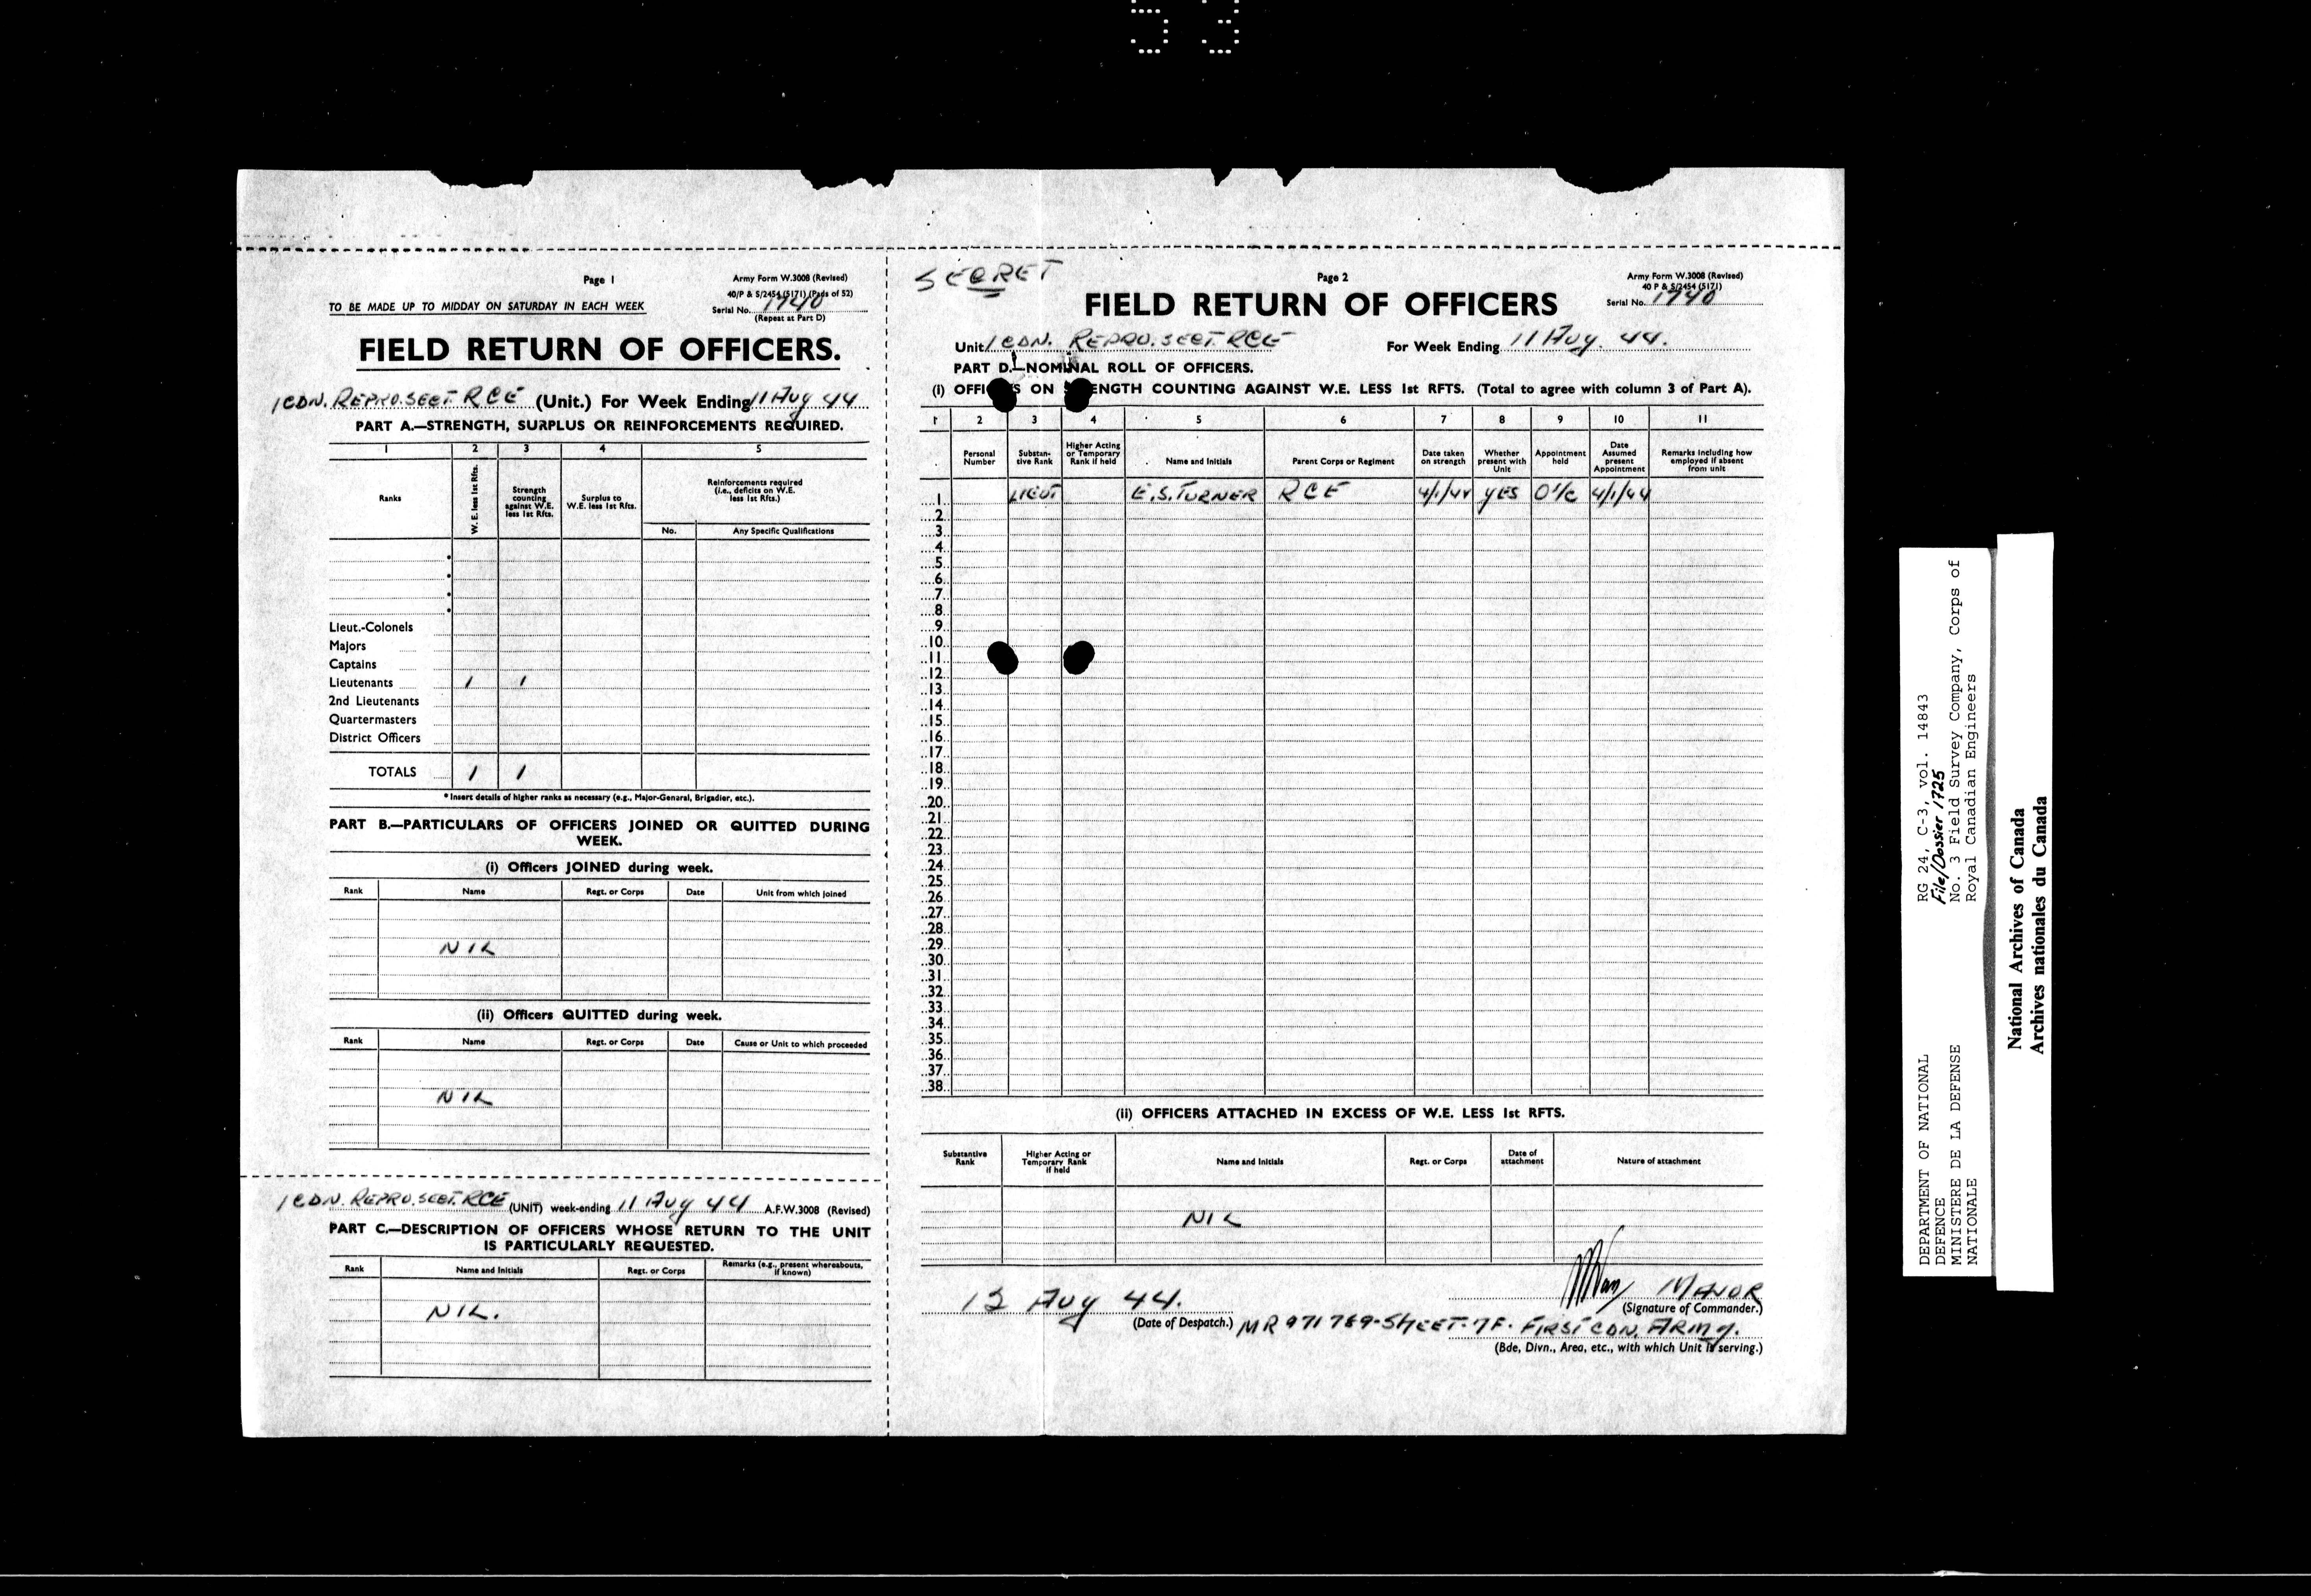 53
Page 1
Army Form W.3008 (Revised)
40/P & S/2454 (5171) (Pads of 52)
TO BE MADE UP TO MIDDAY ON SATURDAY IN EACH WEEK
Serial No. 1740
(Repeat at Part D)
FIELD RETURN OF OFFICERS.
1 CDN. REPRO. SECT. RCE (Unit.) For Week Ending 11 Aug 44
PART A.—STRENGTH, SURPLUS OR REINFORCEMENTS REQUIRED.
1 2 3 4 5
Ranks
W. E. less 1st Rfts.
Strength counting against W.E. less 1st Rfts.
Surplus to W.E. less 1st Rfts.
Reinforcements required (i.e., deficits on W.E. less 1st Rfts.)
No. Any Specific Qualifications
*
*
*
*
Lieut.-Colonels
Majors
Captains
Lieutenants 1 1
2nd Lieutenants
Quartermasters
District Officers
TOTALS 1 1
* Insert details of higher ranks as necessary (e.g., Major-General, Brigadier, etc.).
PART B.—PARTICULARS OF OFFICERS JOINED OR QUITTED DURING
WEEK.
(i) Officers JOINED during week.
Rank Name Regt. or Corps Date Unit from which joined
NIL
(ii) Officers QUITTED during week.
Rank Name Regt. or Corps Date Cause or Unit to which proceeded
NIL
1 CDN. REPRO. SECT. RCE (UNIT) week-ending 11 Aug 44 A.F.W.3008 (Revised)
PART C.—DESCRIPTION OF OFFICERS WHOSE RETURN TO THE UNIT
IS PARTICULARLY REQUESTED.
Rank Name and Initials Regt. or Corps Remarks (e.g., present whereabouts, if known)
NIL.
SECRET
Page 2
Army Form W.3008 (Revised)
40 P & S/2454 (5171)
Serial No. 1740
FIELD RETURN OF OFFICERS
Unit 1 CDN. REPRO. SECT. RCE For Week Ending 11 Aug. 44.
PART D.—NOMINAL ROLL OF OFFICERS.
(i) OFFI S ON ENGTH COUNTING AGAINST W.E. LESS 1st RFTS. (Total to agree with column 3 of Part A).
1 2 3 4 5 6 7 8 9 10 11
Personal Number
Substantive Rank
Higher Acting or Temporary Rank if held
Name and Initials
Parent Corps or Regiment
Date taken on strength
Whether present with Unit
Appointment held
Date Assumed present Appointment
Remarks including how employed if absent from unit
1 LIEUT E.S. TURNER RCE 4/1/44 YES O i/c 4/1/44
2
3
4
5
6
7
8
9
10
11
12
13
14
15
16
17
18
19
20
21
22
23
24
25
26
27
28
29
30
31
32
33
34
35
36
37
38
(ii) OFFICERS ATTACHED IN EXCESS OF W.E. LESS 1st RFTS.
Substantive Rank
Higher Acting or Temporary Rank if held
Name and Initials
Regt. or Corps
Date of attachment
Nature of attachment
NIL
MAJOR
(Signature of Commander.)
Aug 44.
(Date of Despatch.) MR 971789-SHEET-7F. FIRST CDN. ARMY.
(Bde, Divn., Area, etc., with which Unit is serving.)
DEPARTMENT OF NATIONAL
DEFENCE
MINISTERE DE LA DEFENSE
NATIONALE
RG 24, C-3, vol. 14843
File/Dossier 1725
No. 3 Field Survey Company, Corps of
Royal Canadian Engineers
National Archives of Canada
Archives nationales du Canada